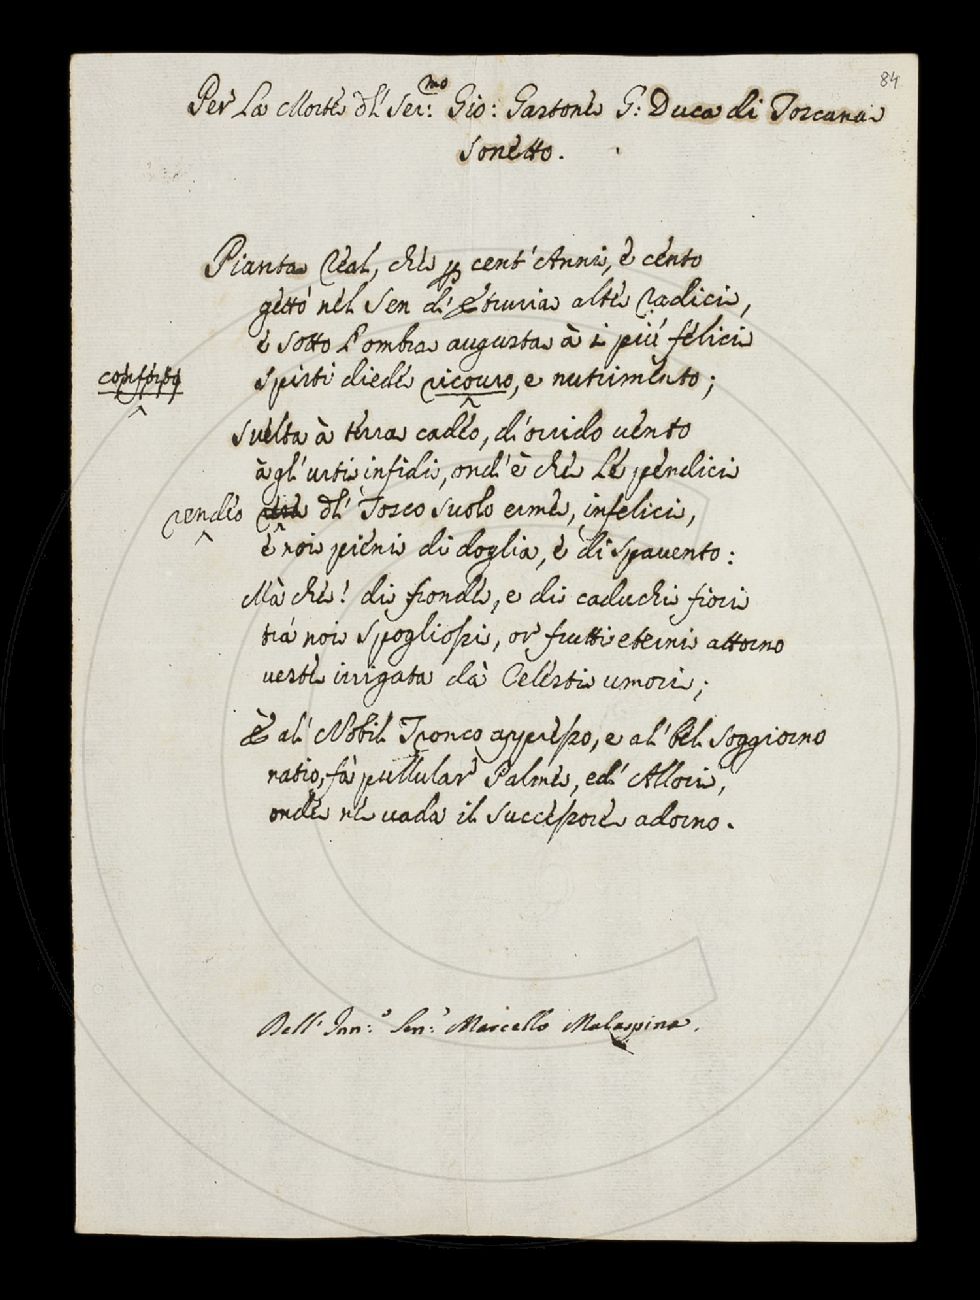 84
Per La Morte dl' Ser:mo Gio: Gastone G: Duca di Toscana
Sonetto.
Pianta Real, che p cent'Anni, è cento
gettò nel Sen d'Etruria alte radici,
e sotto l'ombra augusta à i più felici
conforto
Spirti diede ricouro, e nutrimento;
Suelta à terra cadeo, d'orrido uento
à gl'urti infidi, ond'è che le pendici
rendeo dl' Tosco suolo erme, infelici,
e noi pieni di doglia, è di spauento:
Mà che! di fronde, e di caduchi fiori
trà noi spogliossi, or frutti eterni attorno
ueste irrigata dà Celesti umori;
E al' Nobil Tronco appresso, e al' bel soggiorno
natio, fà pullular' Palme, ed' Allori,
onde ne uada il successore adorno.
Dell' Sen.r Marcello Malaspina.